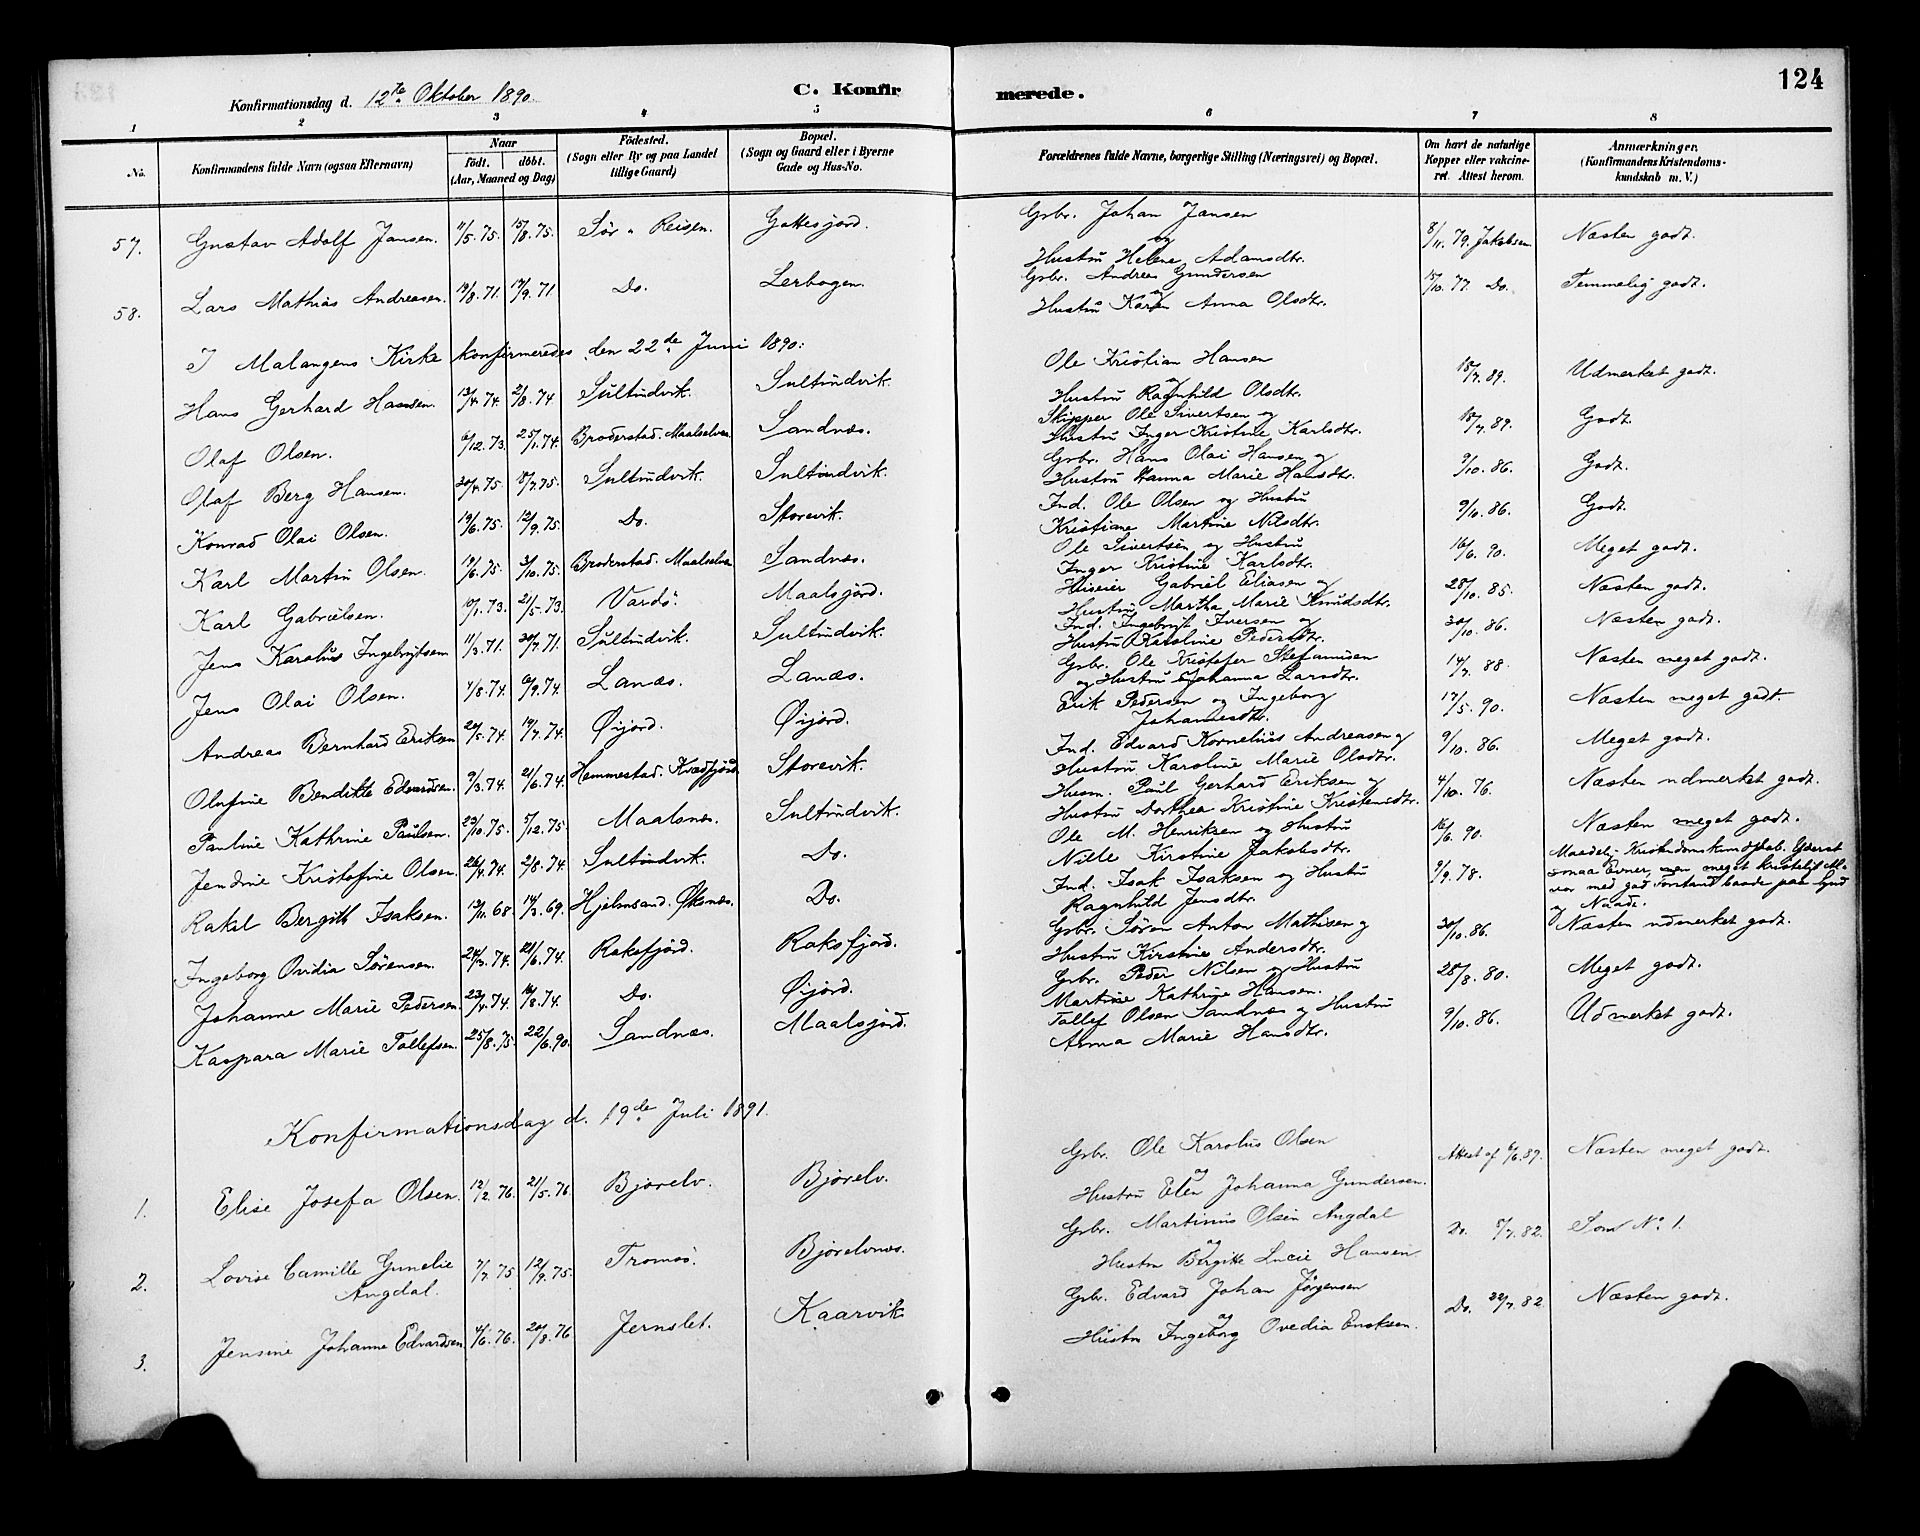 124
Konfirmationsdag d. 12te Oktober 1890.
C. Konfir merede.
1 2 3 4 5 6 7 8
No.
Konfirmandens fulde Navn (ogsaa Efternavn)
Naar
födt. döbt.
(Aar, Maaned og Dag)
Födested.
(Sogn eller By og paa Landet
tillige Gaard)
Bopæl.
(Sogn og Gaard eller i Byerne
Gade og Hus-No.
Forældrenes fulde Navne, borgerlige Stilling (Næringsvei) og Bopæl.
Om havt de naturlige
Kopper eller vakcine-
ret. Attest herom.
Anmærkninger.
(Konfirmandens Kristendoms-
kundskab m. V.)
57. Gustav Adolf Jansen. 11/5.75. 15/8.75. Sör-Reisen. Gottesjord. Grbr. Johan Jansen
og
Hustru Helene Adamsdtr. 8/11.79. Jakobsen Næsten godt.
58. Lars Mathias Andreasen. 19/8.71. 17/9.71 Do. Lerbogen. Grbr. Andreas Gundersen
og
Hustru Karen Anna Olsdtr. 15/10.77 Do. Temmelig godt.
I Malangens Kirke konfirmeredes den 22de Juni 1890:
Hans Gerhard Hansen. 13/4.74. 2/8.74. Sultindvik. Sultindvik. Ole Kristian Hansen
og
Hustru Ragnhild Olsdtr. 18/7.89. Udmerket godt.
Olaf Olsen. 6/12.73. 25/1.74. Broderstad. Maalselven Sandnæs. Skipper Ole Sivertsen og
Hustru Inger Kristine Karlsdtr. 18/7.89. Godt.
Olaf Berg Hansen. 20/4.75. 18/7.75. Sultindvik. Sultindvik. Grbr. Hans Olai Hansen og
Hustru Hanna Marie Hansdtr. 9/10.86. Godt.
Konrad Olai Olsen. 19/6.75. 12/9.75. Do. Storevik. Ind. Ole Olsen og Hustru
Kristiane Martine Nilsdtr. 9/10.86. Godt.
Karl Martin Olsen. 19/6.75. 31/10.75. Broderstad. Maalselven Sandnæs. Ole Sivertsen og Hustru
Inger Kristine Karlsdtr. 16/6.90. Meget godt.
Karl Gabrielsen. 10/1.73. 21/5.73. Vardö. Maalsjord. Huseier Gabriel Eliasen og
Hustru Martha Marie Knudsdtr. 28/10.85. Næsten godt.
Jens Karolus Ingebrigtsen 11/3.71. 30/7.71. Sultindvik. Sultindvik. Ind. Ingebrigt Iversen og
Hustru Karoline Pedersdtr. 30/10.86. Næsten godt.
Jens Olai Olsen. 4/8.74. 6/9.74. Lanæs. Lanæs. Grbr. Ole Kristofer Stefansen
og Hustru Johanna Larsdtr. 14/7.88. Næsten meget godt.
Andreas Bernhard Eriksen 20/5.74. 19/7.74. Øijord. Øijord. Erik Pedersen og Ingeborg
Johannesdtr. 17/5.90. Næsten meget godt.
Olufine Benditte Edvardsen. 9/3.74. 21/6.74. Hemmestad. Kvædfjord. Storevik. Ind. Edvard Kornelius Andreasen og
Hustru Karoline Marie Olsdtr. 9/10.86. Meget godt.
Pauline Kathrine Paulsen. 23/10.75. 5/12.75. Maalsnes. Sultindvik. Husm. Paul Gerhard Eriksen og
Hustru Dorthea Kristine Kristensdtr. 4/10.76. Næsten udmerket godt.
Jendine Kristofine Olsen. 26/4.74. 2/8.74. Sultindvik. Do. Ole M. Henriksen og Hustru
Nille Kirstine Jakobsdtr. 16/6.90. Næsten meget godt.
Rakel Bergith Isaksen. 13/11.68. 14/3.69. Hjelmsand. Øksnæs. Do. Ind. Isak Isaksen og Hustru
Ragnhild Jensdtr. 9/9.78. Maadelig Kristendomskundskab. Yderst
smaa Evner, men meget kristelig Al-
vor med god Forstand baade paa Synd
og Naade.
Ingeborg Ovidia Sørensen. 24/3.74. 21/6.74. Raksfjord. Raksfjord. Grbr. Søren Anton Mathisen og
Hustru Kirstine Andersdtr. 30/10.86. Næsten udmerket godt.
Johanne Marie Pedersen. 23/4.74. 16/8.74. Do. Øijord. Grbr. Peder Nilsen og Hustru
Martine Kathrine Hansen. 28/8.80. Meget godt.
Kaspara Marie Tollefsen. 25/8.75. 22/6.90. Sandnæs. Maalsjord. Tollef Olsen Sandnæs og Hustru
Anna Marie Hansdtr. 9/10.86. Udmerket godt.
Konfirmationsdag d. 19de Juli 1891.
1. Elise Josefa Olsen. 12/2.76. 21/5.76. Bjørelv. Bjørelv. Grbr. Ole Karolus Olsen
og
Hustru Elen Johanna Gundersen. Attest af 6/6.87. Næsten meget godt.
2. Lovise Camille Gunelie
Angdal. 7/7.75. 12/9.75. Tromsö. Bjørelvnes. Grbr. Martinus Olsen Angdal
og
Hustru Birgitte Lucie Hansen. Do. 5/7.82. Som No 1.
3. Jensine Johanne Edvardsen. 4/6.76. 20/8.76 Jernslet. Kaarvik. Grbr. Edvard Johan Jørgensen
og
Hustru Ingeborg Ovedia Enoksen. Do. 22/7.82. Næsten godt.